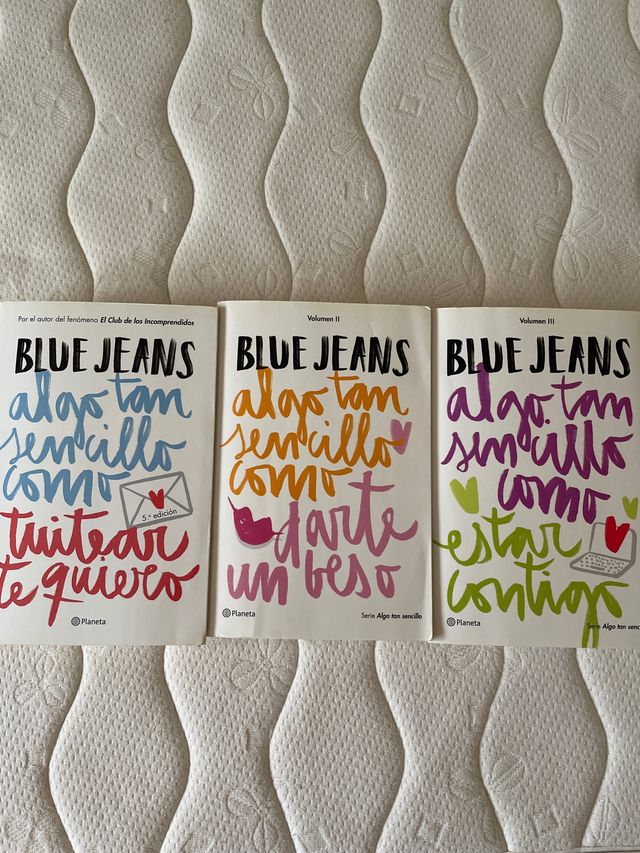 Por el autor del fenómeno El Club de los Incomprendidos
BLUE JEANS
algo tan
sencillo
como
5.ª edición
tuitear
te quiero
Planeta
Volumen II
BLUE JEANS
algo tan
sencillo
como
darte
un beso
Planeta
Serie Algo tan sencillo
Volumen III
BLUE JEANS
algo tan
sencillo
como
estar
contigo
Planeta
Serie Algo tan senc